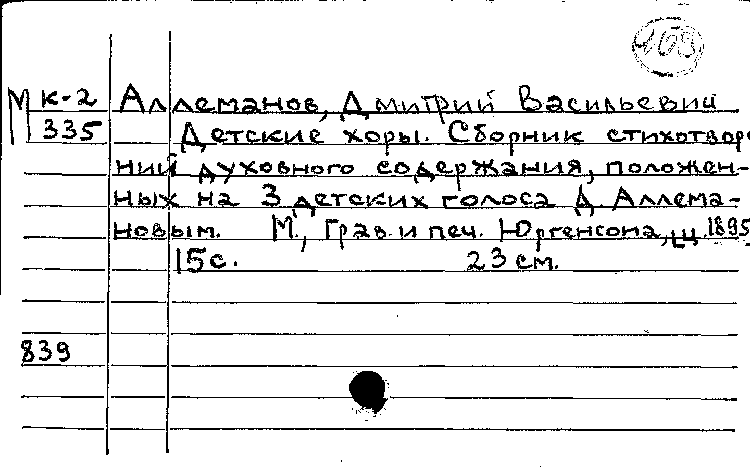 103
М К-2 Аллеманов, Дмитрий Васильевич
335 Детские хоры. Сборник стихотворе
ний духовного содержания, положен-
ных на 3 детских голоса Д. Аллема-
новым. М., Грав. и печ. Юргенсона, ц. 1895
15с. 23 см.
839